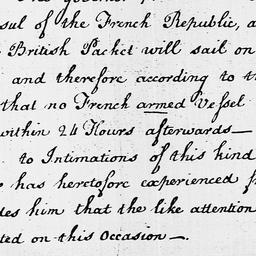 sul of the French Republic, a
British Packet will sail on
and therefore according to th
that no French armed Vessel
within 24 Hours afterwards—
to Intimations of this kind
has heretofore experienced f
des him that the like attention
ted on this Occasion—.